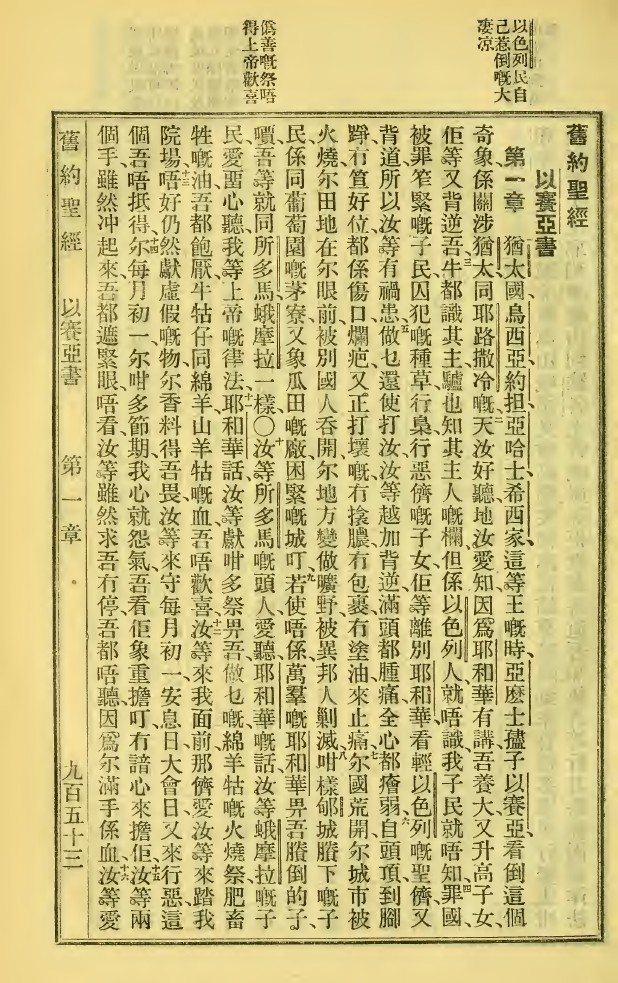 以色列民自
己惹倒嘅大
凄凉
僞善嘅祭唔
得上帝歡喜
舊約聖經
以賽亞書
第一章 猶太國、烏西亞、約担、亞哈士、希西家、這等王嘅時、亞麽士孻子以賽亞、看倒這個
奇象、係關涉猶太同耶路撒冷嘅、二天汝好聽、地汝愛知、因爲耶和華有講、吾養大又升高子女、
佢等又背逆吾、三牛都識其主、驢也知其主人嘅欄、但係以色列人就唔識、我子民就唔知、四罪國、
被罪笮緊嘅子民、囚犯嘅種草、行梟行惡儕嘅子女、佢等離別耶和華、看輕以色列嘅聖儕、又
背道、所以汝等有禍患、五做乜還使打汝、汝等越加背逆、滿頭都腫痛、全心都瘡弱、六自頭頂到腳
踭、冇笪好位、都係傷口爛疤、又正打壞嘅、冇捻膿、冇包裹、冇塗油來止痛、七尔國荒開、尔城市被
火燒、尔田地在尔眼前、被別國人吞開、尔地方變做曠野、被異邦人剿滅咁樣、八郇城賸下嘅子
民、係同葡萄園嘅茅寮、又象瓜田嘅廠、困緊嘅城叮、九若使唔係萬羣嘅耶和華、畀吾賸倒的子
吾等就同所多馬蛾摩拉一樣、〇十汝等所多馬嘅頭人、愛聽耶和華嘅話、汝等蛾摩拉嘅子
民、愛畱心聽我等上帝嘅律法、十一耶和華話、汝等獻咁多祭畀吾做乜嘅、綿羊牯嘅火燒祭、肥畜
牲嘅油、吾都飽厭、牛牯仔同綿羊山羊牯嘅血、吾唔歡喜、十二汝等來我面前、那儕愛汝等來踏我
院場、十三唔好仍然獻虛假嘅物、尔香料得吾畏、汝等來守每月初一、安息日、大會日、又來行惡、這
個吾唔抵得、十四尔每月初一、尔咁多節期、我心就怨氣、吾看佢象重擔叮、冇諳心來擔佢、十五汝等兩
個手雖然沖起來、吾都遮緊眼唔看、汝等雖然求吾冇停、吾都唔聽、因爲尔滿手係血、十六汝等愛
舊約聖經 以賽亞書 第一章 九百五十三